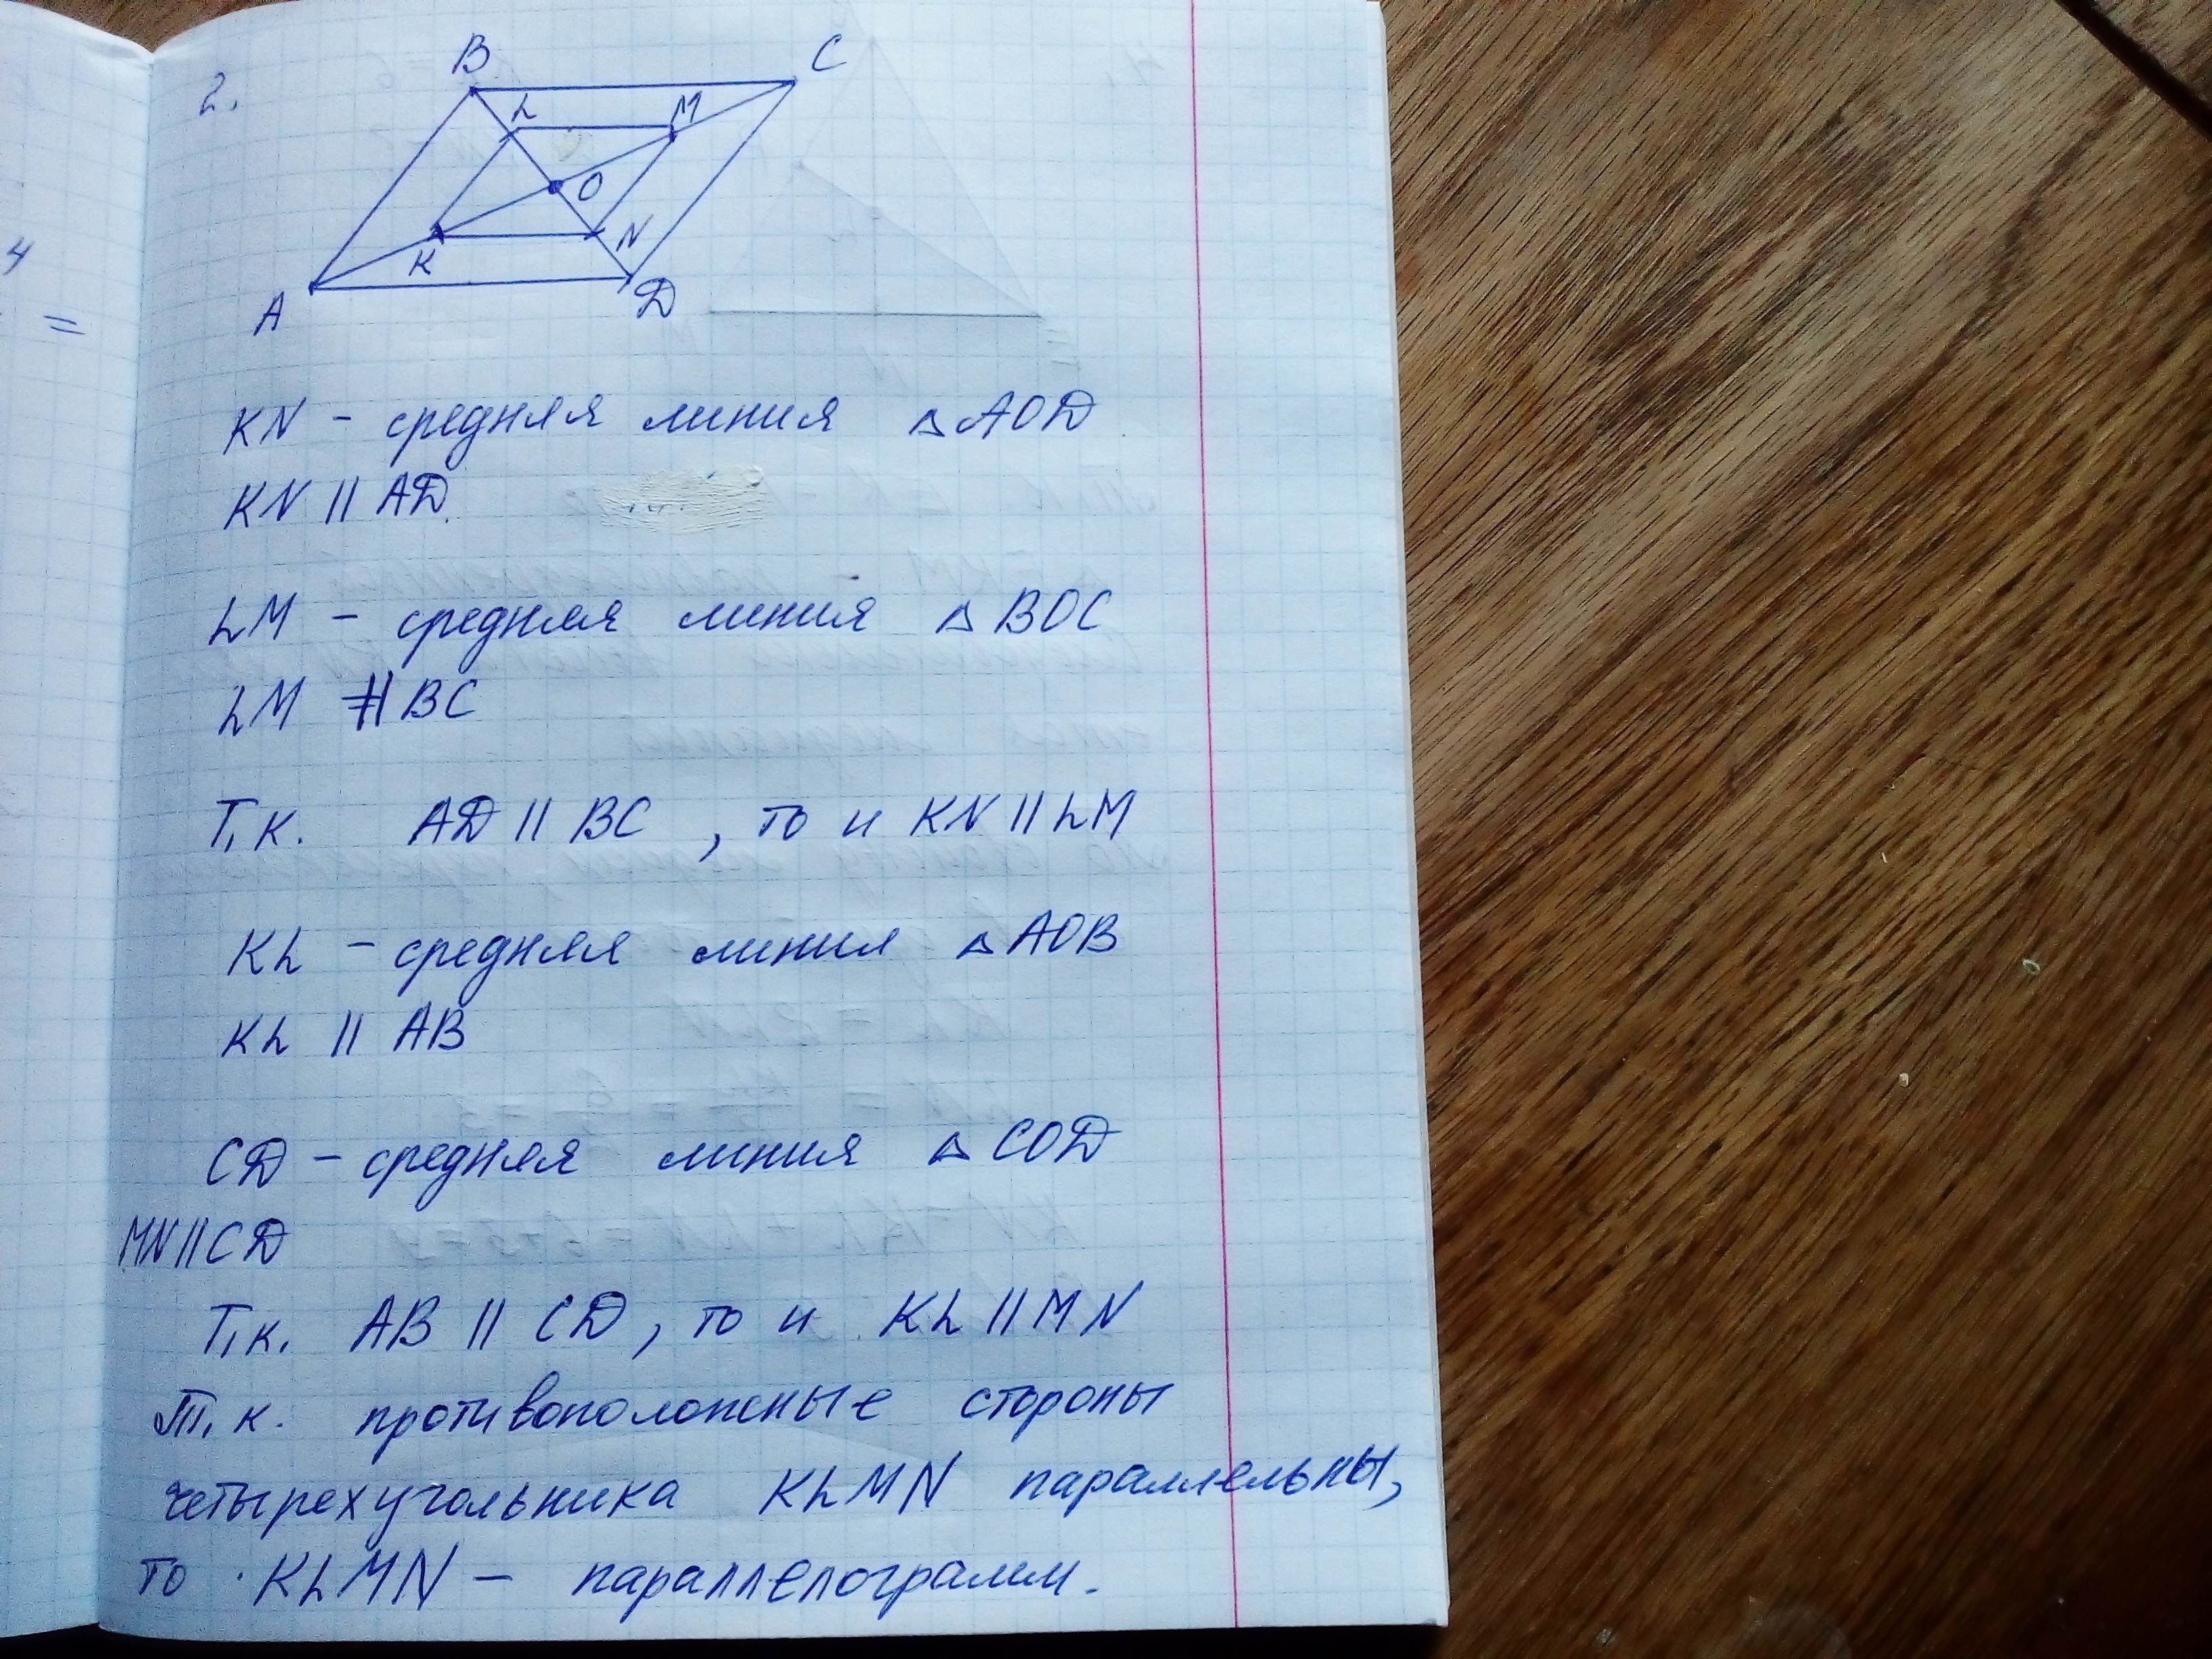 2.
B
C
L
M
O
K
N
A
D
4
=
KN - средняя линия △AOD
KN || AD.
LM - средняя линия △ BOC
LM || BC
Т.к. AD || BC, то и KN || LM
KL - средняя линия △AOB
KL || AB
CD - средняя линия △ COD
MN || CD
Т.к. AB || CD, то и KL || MN
Т.к. противоположные стороны
четырехугольника KLMN параллельны,
то KLMN - параллелограмм.